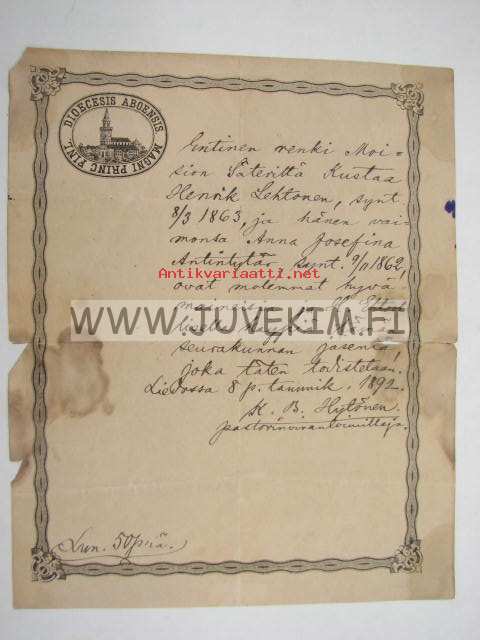 DIOECESIS ABOENSIS MAGNI PRINC FINL
Entinen renki Moi-
sion Säteriltä Kustaa
Henrik Lehtonen, synt.
8/3 1863, ja hänen vai-
monsa Anna Josefina
Antintytär synt. 9/11 1862,
Antikvariaatti.net
ovat molemmat hyvä-
maineisia
WWW.JUVEKIM.FI
seurakunnan jäseniä,
joka täten todistetaan.
Liedossa 8 p. tammik. 1892.
K. B. Hytönen.
pastorinviran toimittaja.
Lun. 50 p:iä.